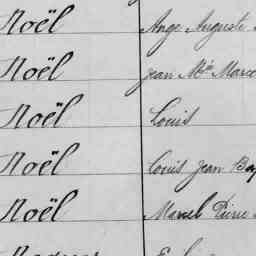 Noël Ange Auguste
Noël Jean Mie Marce
Noël Louis
Noël Louis Jean Bap
Noël Marcel Pierre